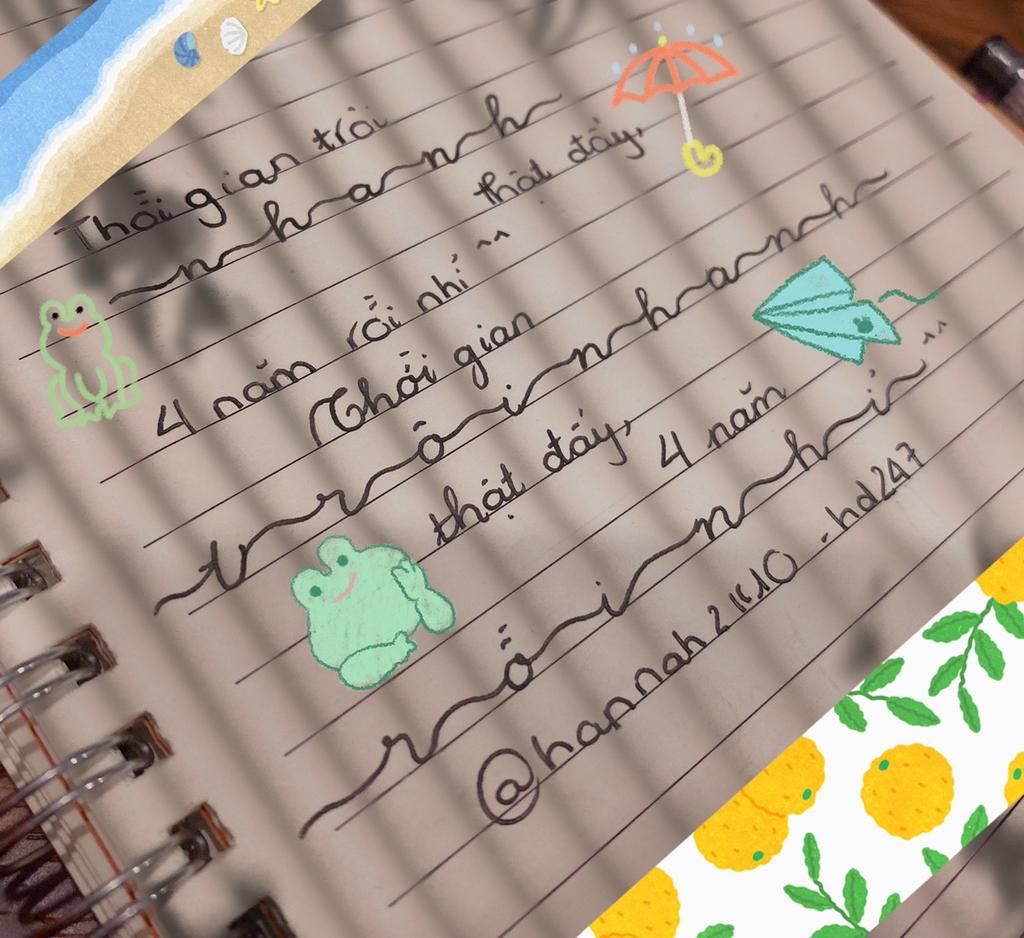 Thời gian trôi
nhanh thật đấy,
4 năm rồi nhỉ ^^
Thời gian
trôi nhanh
thật đấy, 4 năm
rồi nhỉ ^^
@hannah2k10_hd247